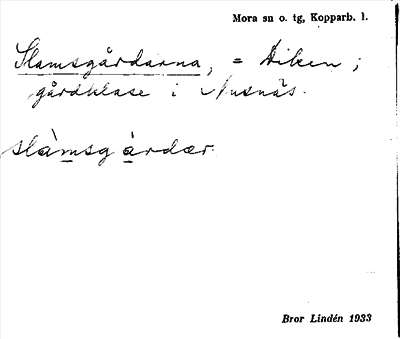 Mora sn o. tg, Kopparb. l.
Slamsgårdarna, = Diken ;
gårdklase i Nusnäs.
slàmsg àrdær.
Bror Lindén 1933